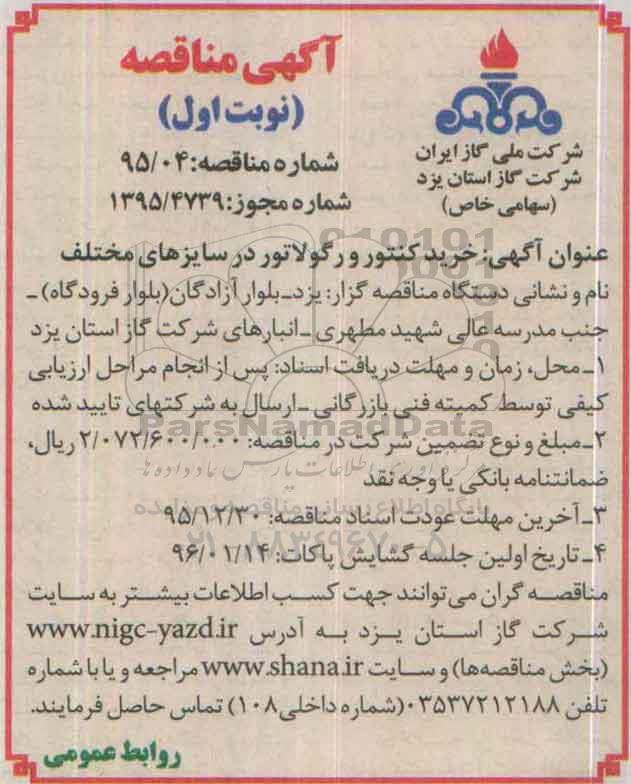 آگهی مناقصه
(نوبت اول)
شماره مناقصه: ۹۵/۰۴
شماره مجوز: ۱۳۹۵/۴۷۳۹
شرکت ملی گاز ایران
شرکت گاز استان یزد
(سهامی خاص)
عنوان آگهی: خرید کنتور و رگولاتور در سایزهای مختلف
نام و نشانی دستگاه مناقصه گزار: یزد-بلوار آزادگان(بلوار فرودگاه) -
جنب مدرسه عالی شهید مطهری -انبارهای شرکت گاز استان یزد
۱-محل، زمان و مهلت دریافت اسناد: پس از انجام مراحل ارزیابی
کیفی توسط کمیته فنی بازرگانی -ارسال به شرکتهای تایید شده
۲-مبلغ و نوع تضمین شرکت در مناقصه: ۲/۰۷۲/۶۰۰/۰۰۰ ریال،
ضمانتنامه بانکی یا وجه نقد
۳-آخرین مهلت عودت اسناد مناقصه: ۹۵/۱۲/۳۰
۴-تاریخ اولین جلسه گشایش پاکات: ۹۶/۰۱/۱۴
مناقصه گران می توانند جهت کسب اطلاعات بیشتر به سایت
شرکت گاز استان یزد به آدرس www.nigc-yazd.ir
(بخش مناقصه‌ها) و سایت www.shana.ir مراجعه و یا با شماره
تلفن ۰۳۵۳۷۲۱۲۱۸۸(شماره داخلی۱۰۸) تماس حاصل فرمایند.
روابط عمومی
ParsNamadData